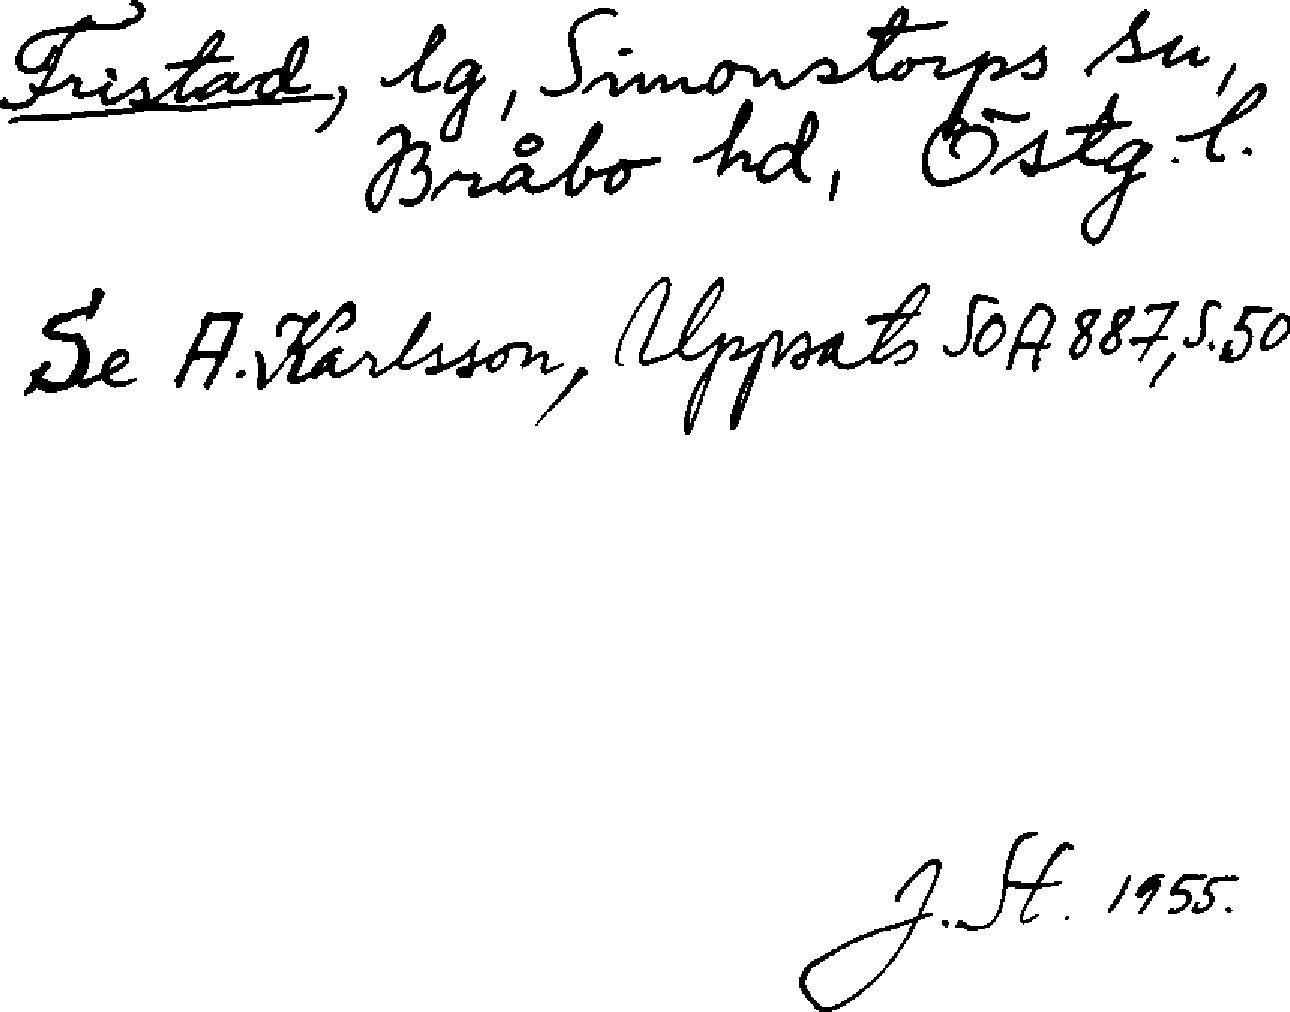 Fristad, lg, Simonstorps sn,
Bråbo hd, Östg. l.
Se A. Karlsson, Uppsats SOA 887, s. 50
J. St. 1955.